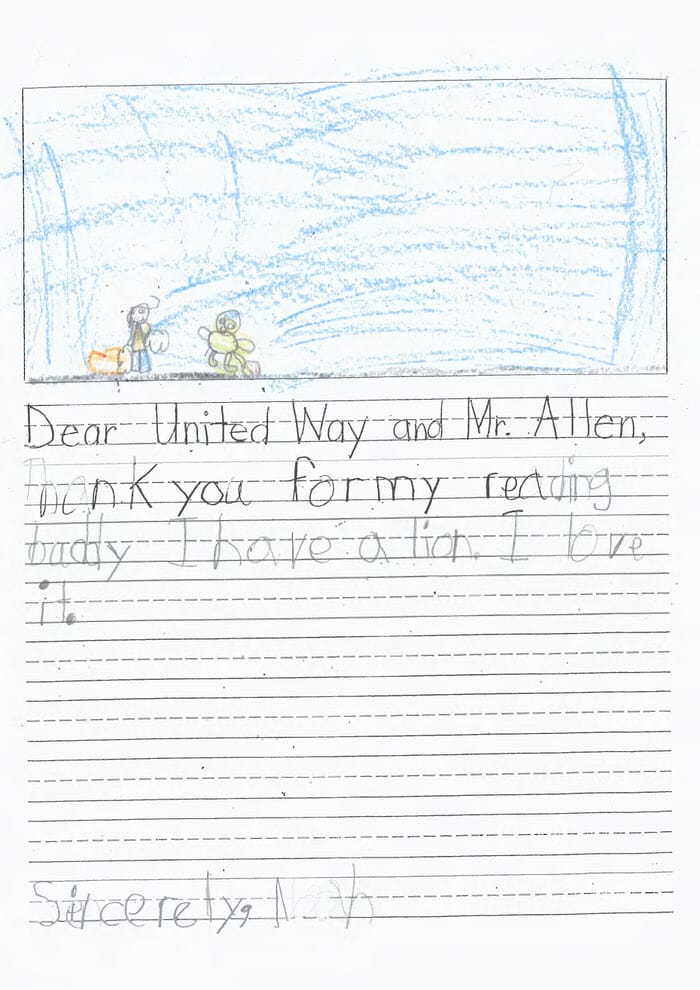 Dear United Way and Mr. Allen,
Thank you for my reading
baddy I have a lion. I love
it.
Sircerely, Noah